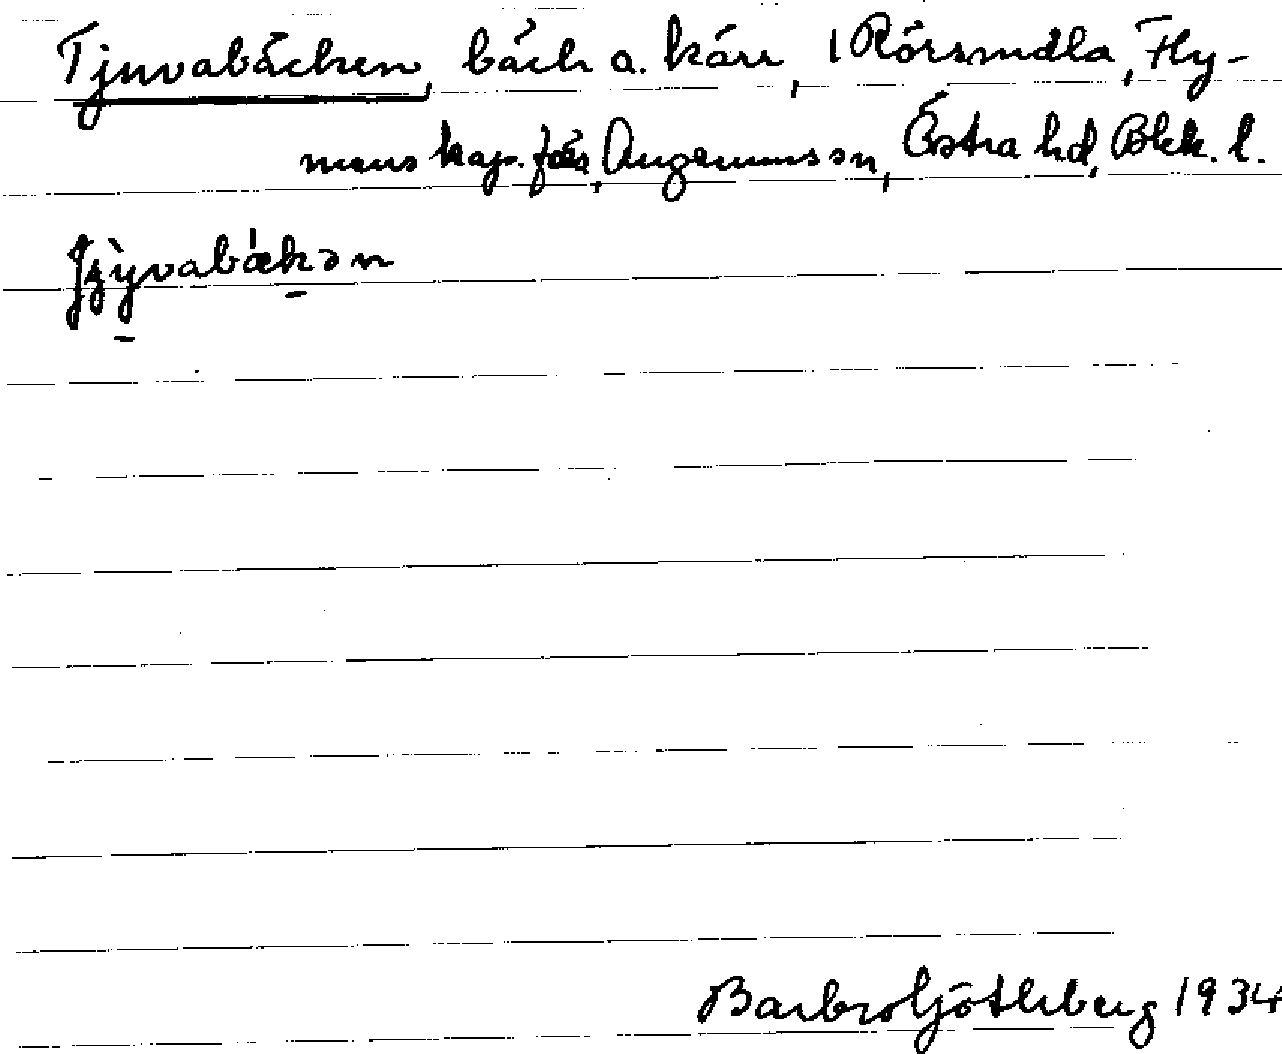 Tjuvabäcken, bäck o. kärr, i Rörsmåla, Fly-
mens kap. förs, Augerumssn, Östra hd, Blek. l.
bäkən
Barbro Göthberg 1934